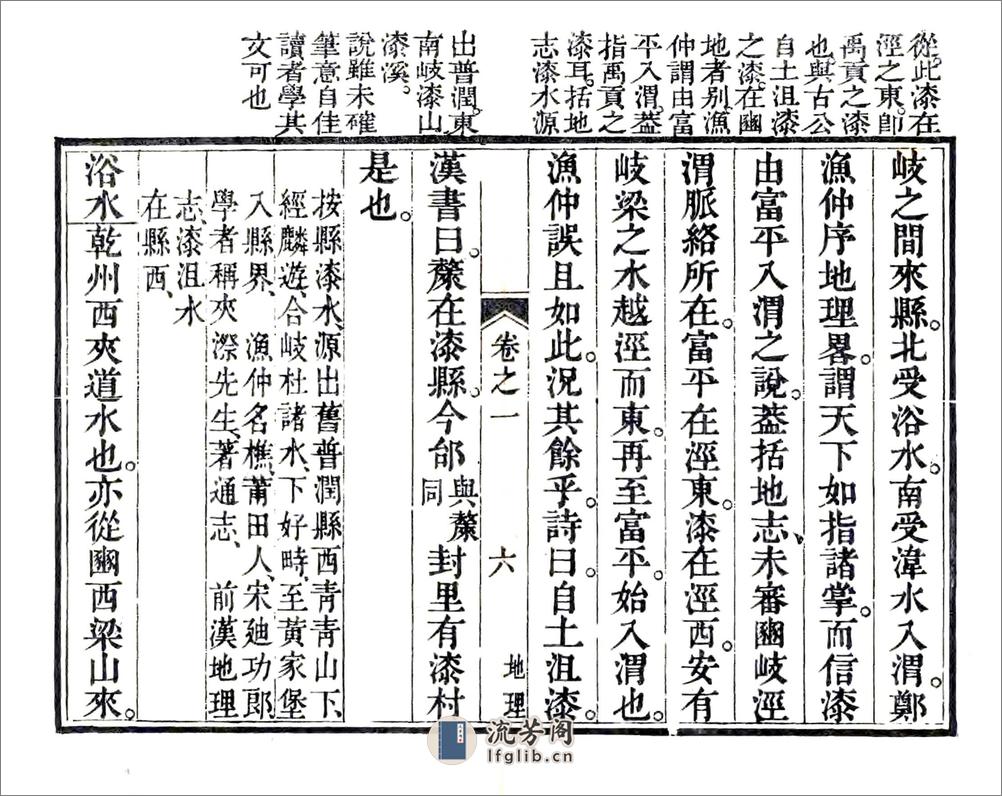 從此漆在
涇之東。卽
禹貢之漆
也。與古公
自土沮漆
之漆。在豳
地者別。漁
仲謂由富
平入渭。葢
指禹貢之
漆耳。括地
志漆水源
出普潤。東
南岐漆山
漆溪。
說雖未確
筆意自佳
讀者學其
文可也
岐之間來縣。北受浴水。南受湋水入渭。鄭
漁仲序地理畧。謂天下如指諸掌。而信漆
由富平入渭之說。葢括地志、未審豳岐涇
渭脈絡所在。富平在涇東。漆在涇西。安有
岐梁之水越涇而東。再至富平。始入渭也。
漁仲誤且如此。況其餘乎。詩曰。自土沮漆。
卷之一 六 地理
漢書曰。斄在漆縣。今邰與斄同封里有漆村
是也。
按縣漆水、源出舊普潤縣西青青山下、
經麟遊、合岐杜諸水、下好畤、至黃家堡
入縣界、 漁仲名樵、莆田人、宋廸功郎
學者稱夾漈先生、著通志、 前漢地理
志、漆沮水
在縣西、
浴水乾州西夾道水也。亦從豳西梁山來。
流芳阁
lfglib.cn